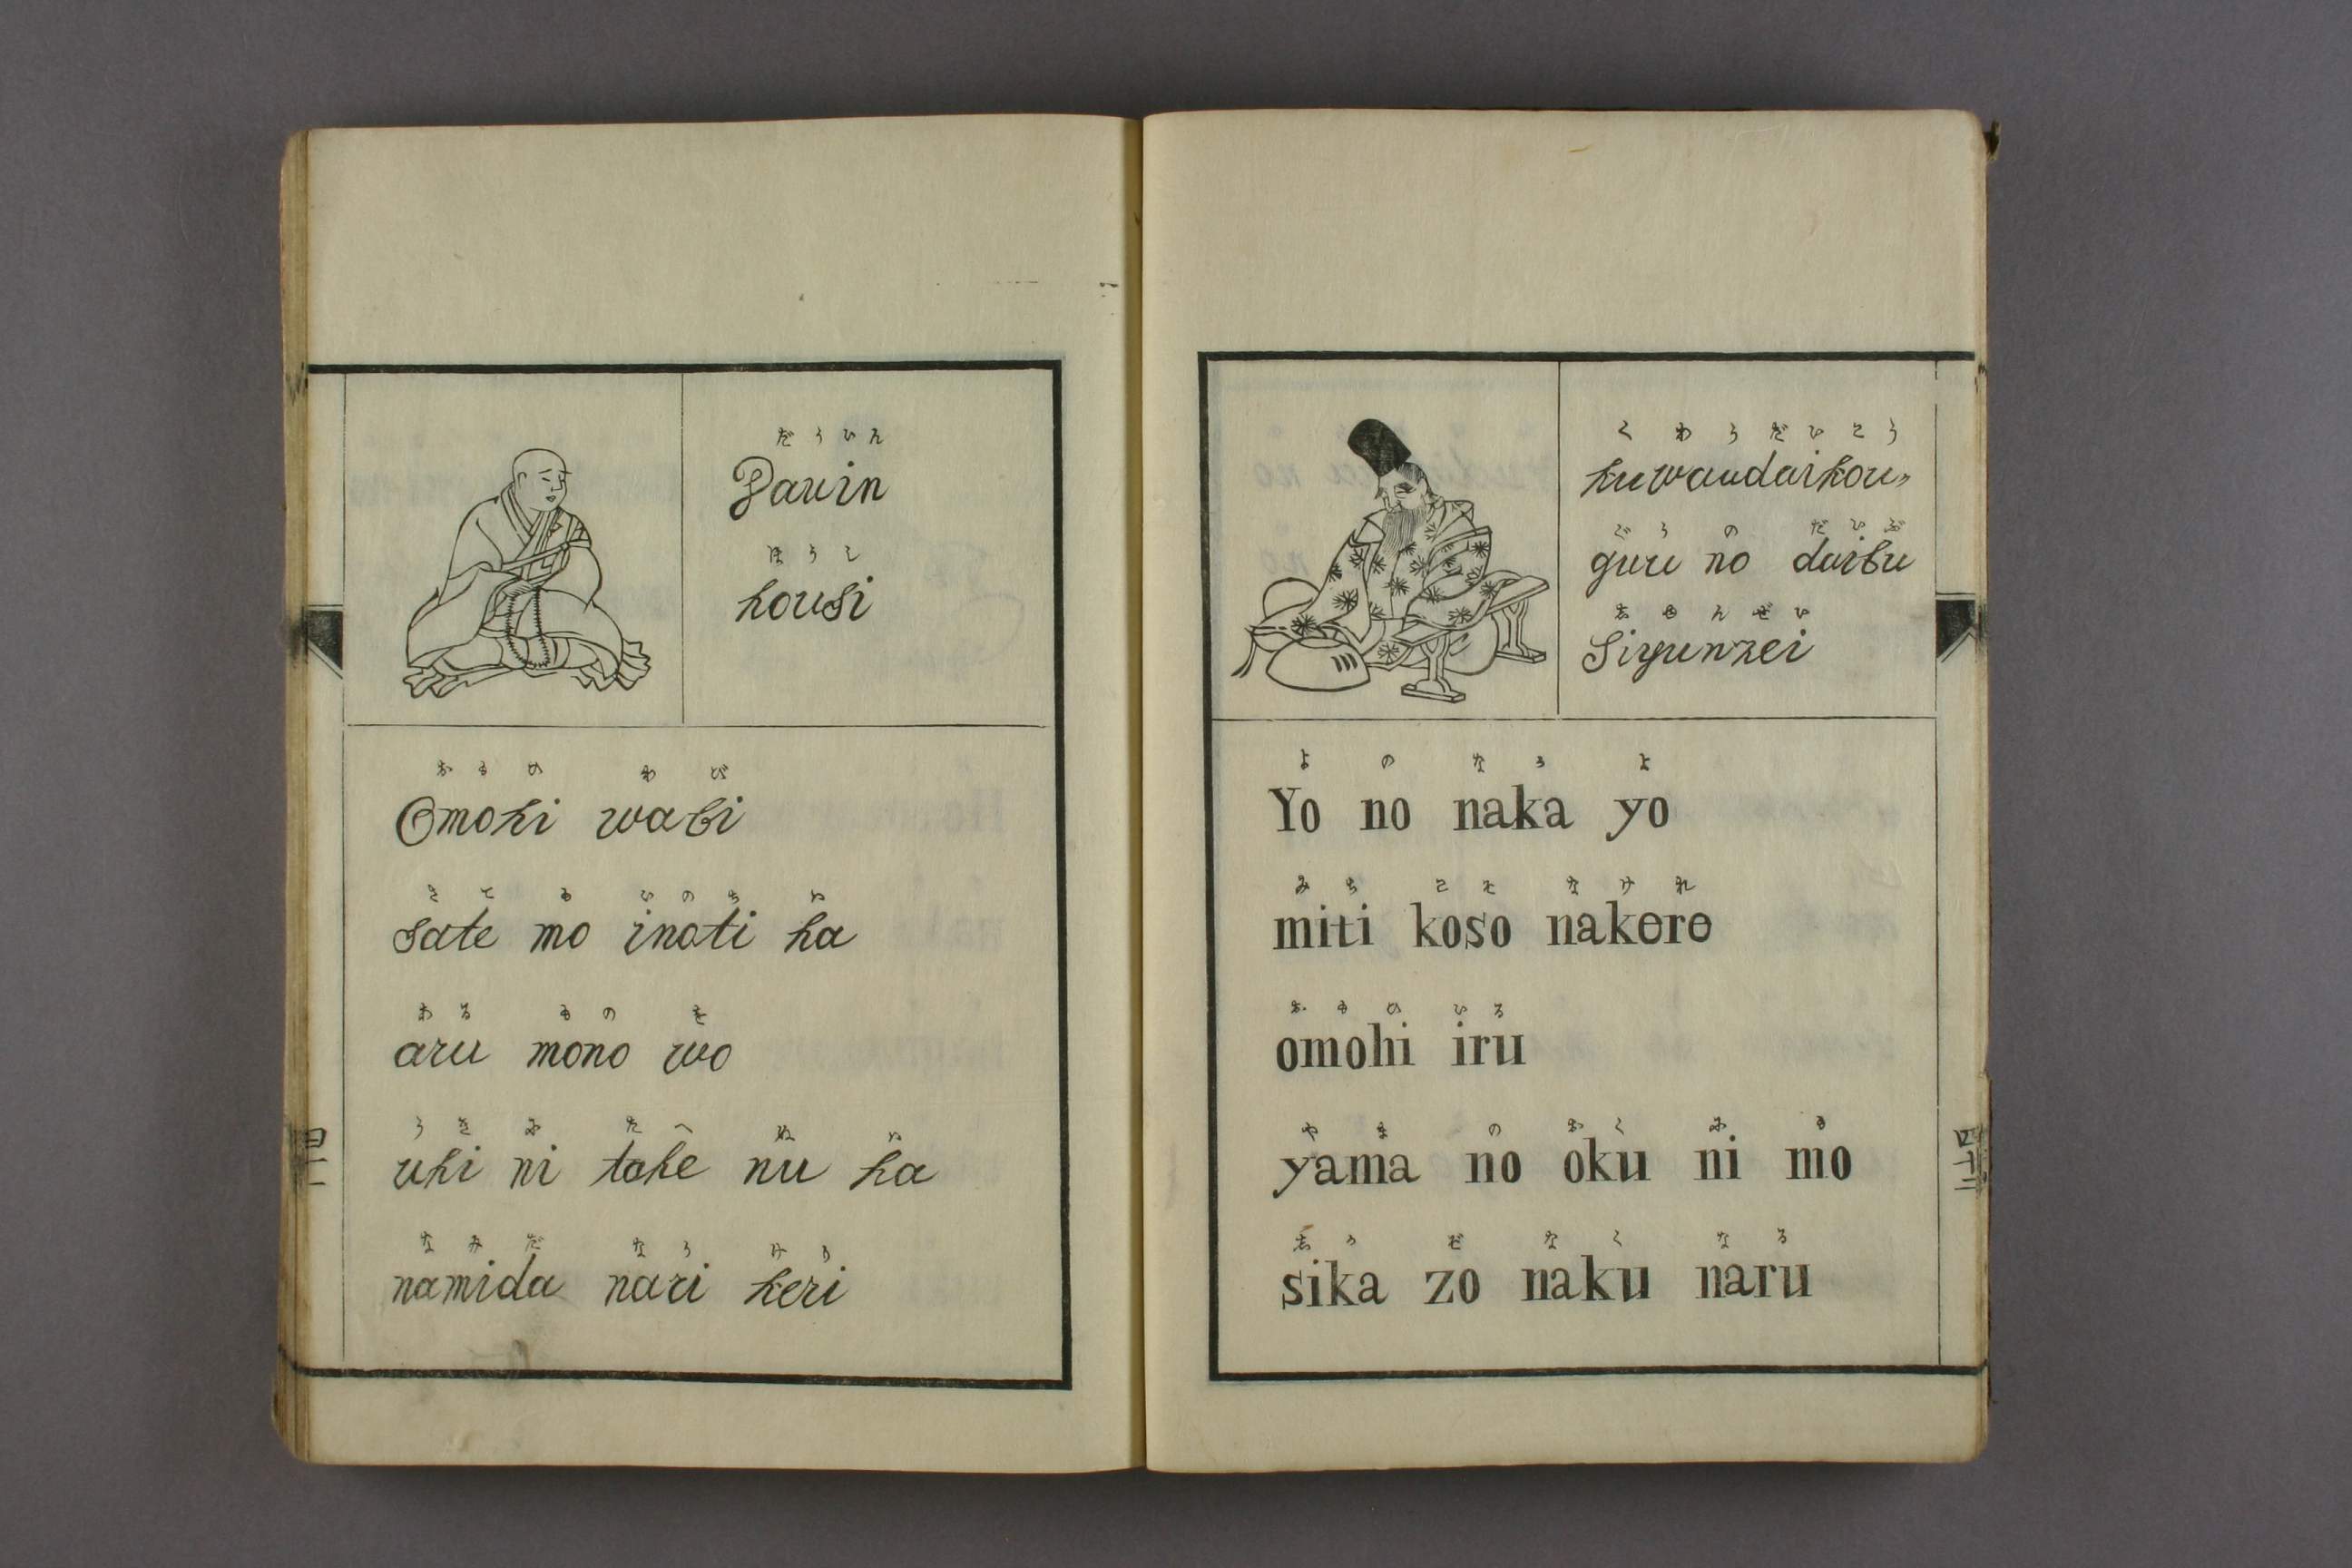 だういん
Dauin
ほうし
housi
おもひ わび
Omohi wabi
さて も いのち は
sate mo inoti ha
ある もの を
aru mono wo
うき に たへ ぬ は
uki ni tahe nu ha
なみだ なり けり
namida nari keri
くわうだいこう
kuwaudaikou〃
ぐう の だいぶ
guu no daibu
しゆんぜい
Siyunzei
よ の なか よ
Yo no naka yo
みち こそ なけれ
miti koso nakere
おもひ いる
omohi iru
やま の おく に も
yama no oku ni mo
しか ぞ なく なる
sika zo naku naru
四十二